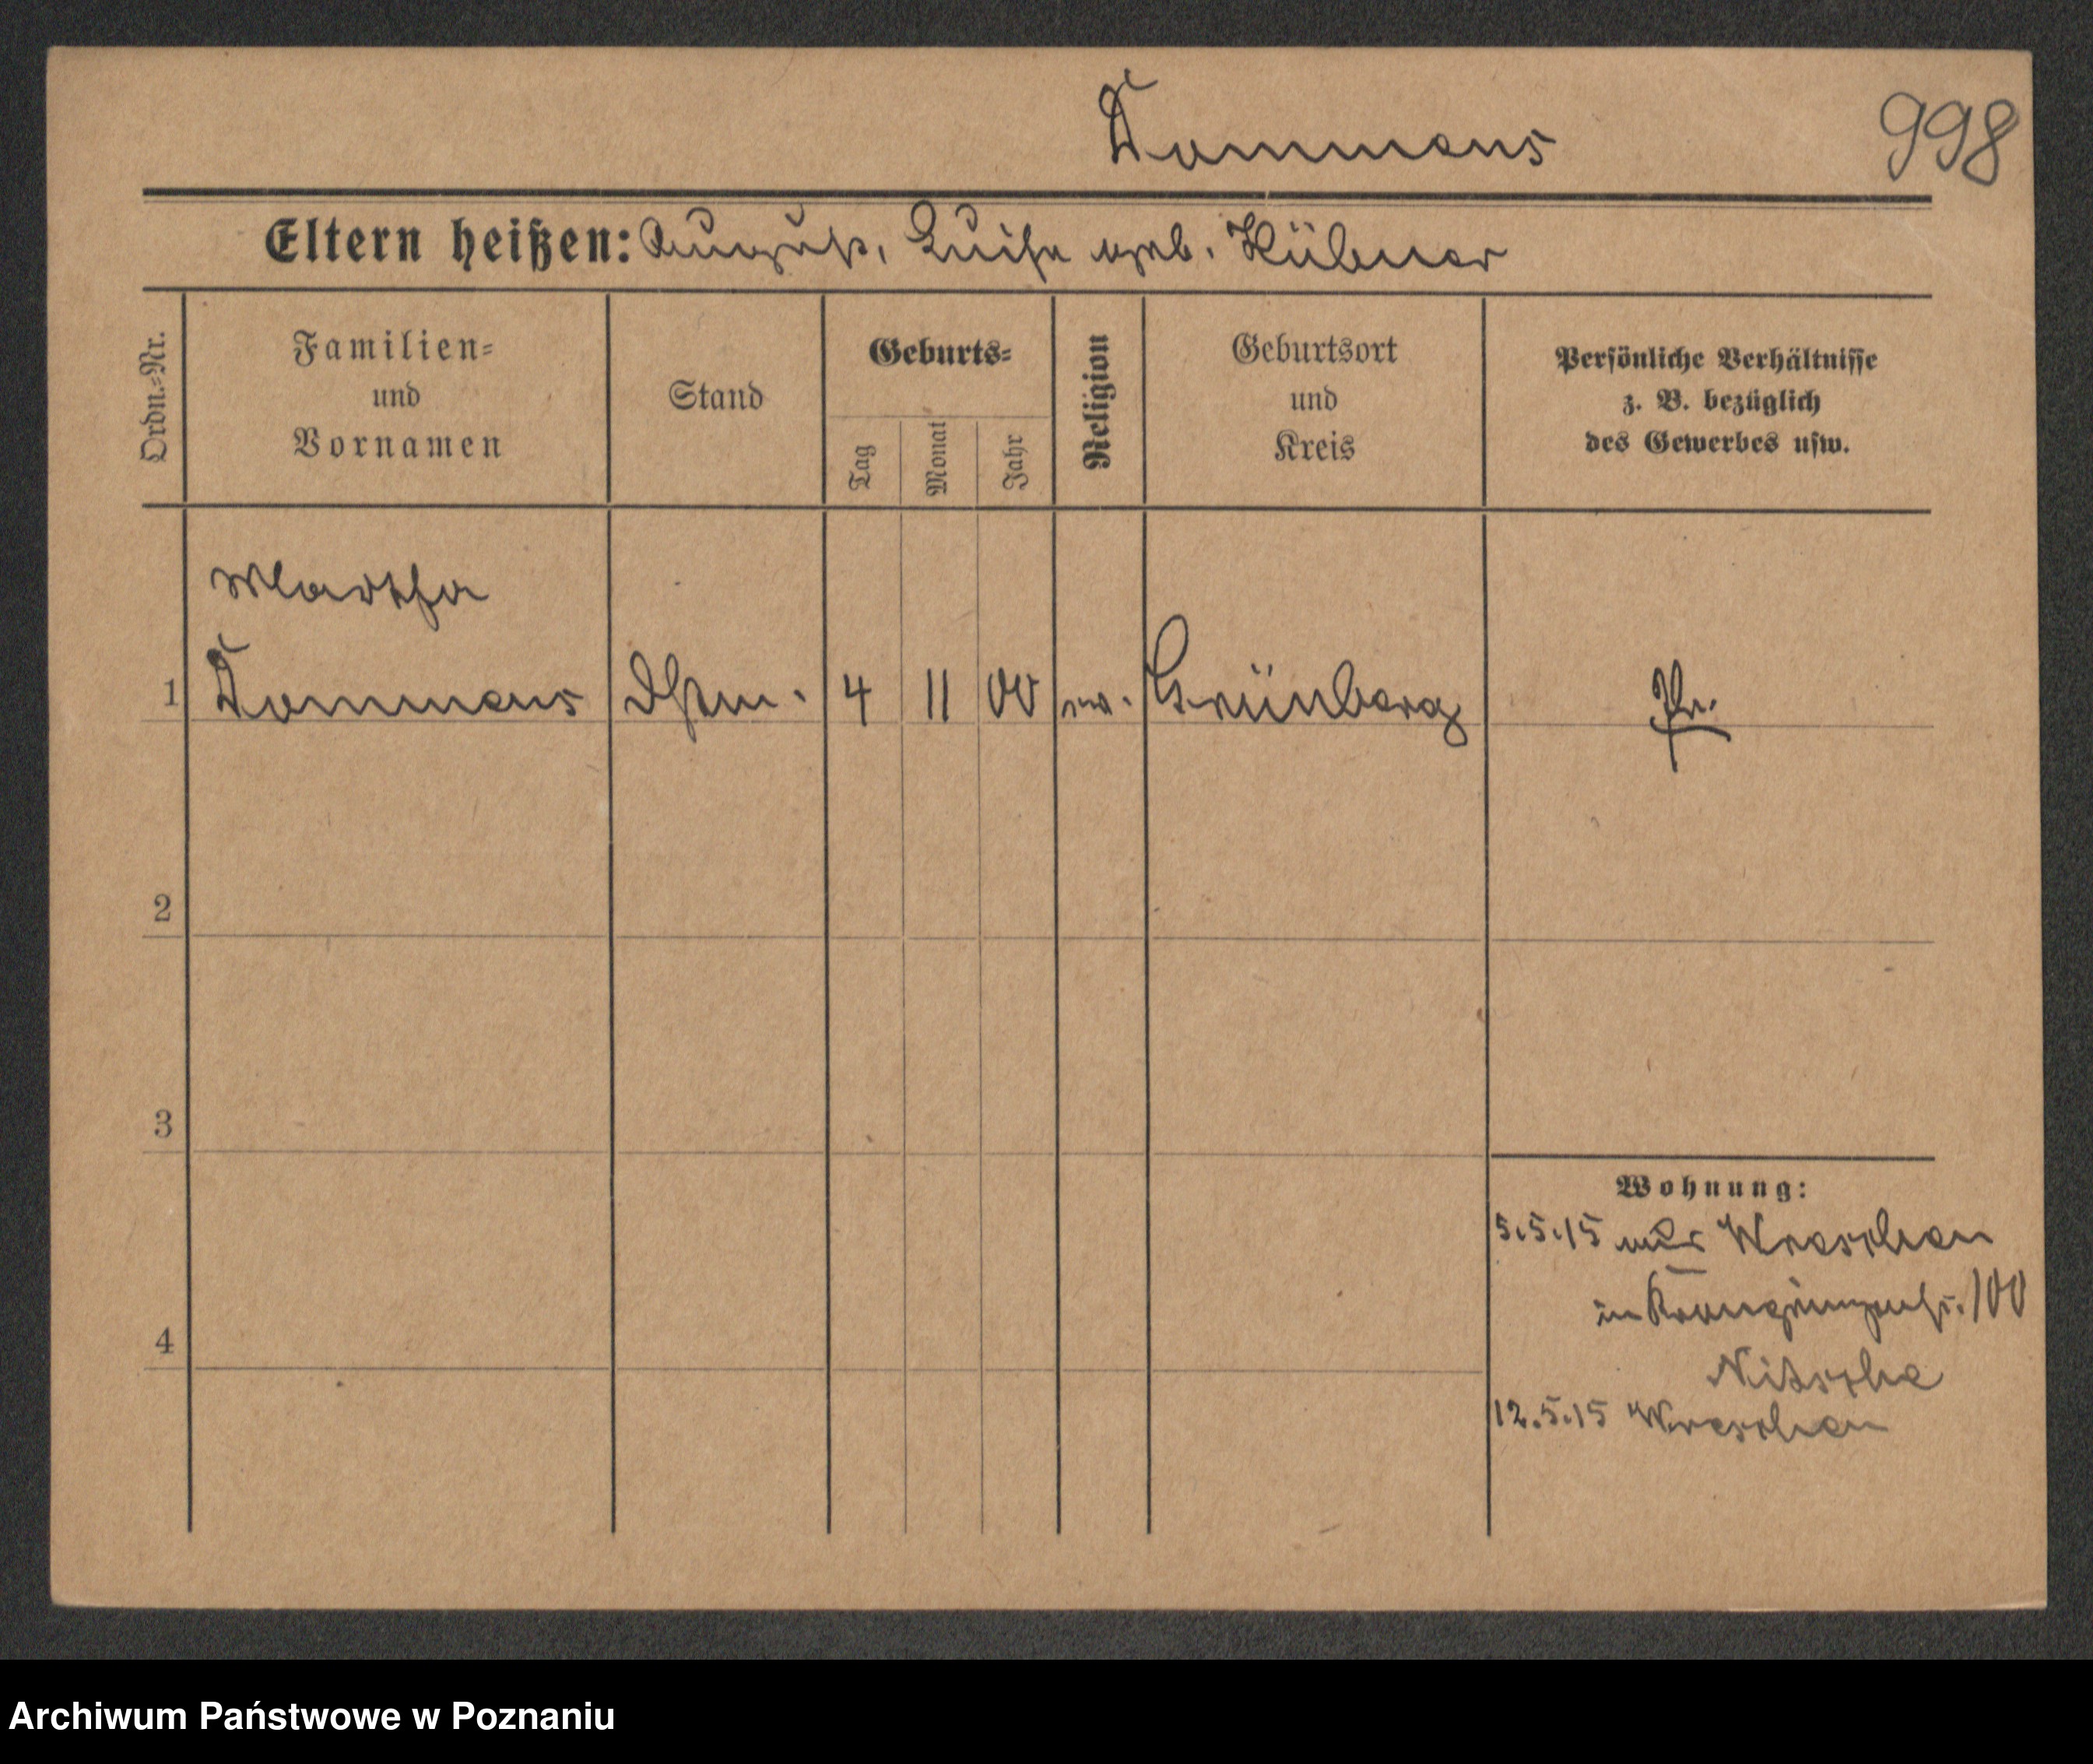 Tommens
998
Eltern heißen: August, Luise geb. Hübner
Ordn.=Nr.
Familien=
und
Vornamen
Stand
Geburts=
Tag
Monat
Jahr
Religion
Geburtsort
und
Kreis
Persönliche Verhältnisse
z. B. bezüglich
des Gewerbes usw.
Martha
1 Tommens Dstm. 4 11 00 ev. Grünberg Pr.
2
3
4
Wohnung:
5.5.15 aus Wreschen
in 100
Nitsche
12.5.15 Wreschen
Archiwum Państwowe w Poznaniu